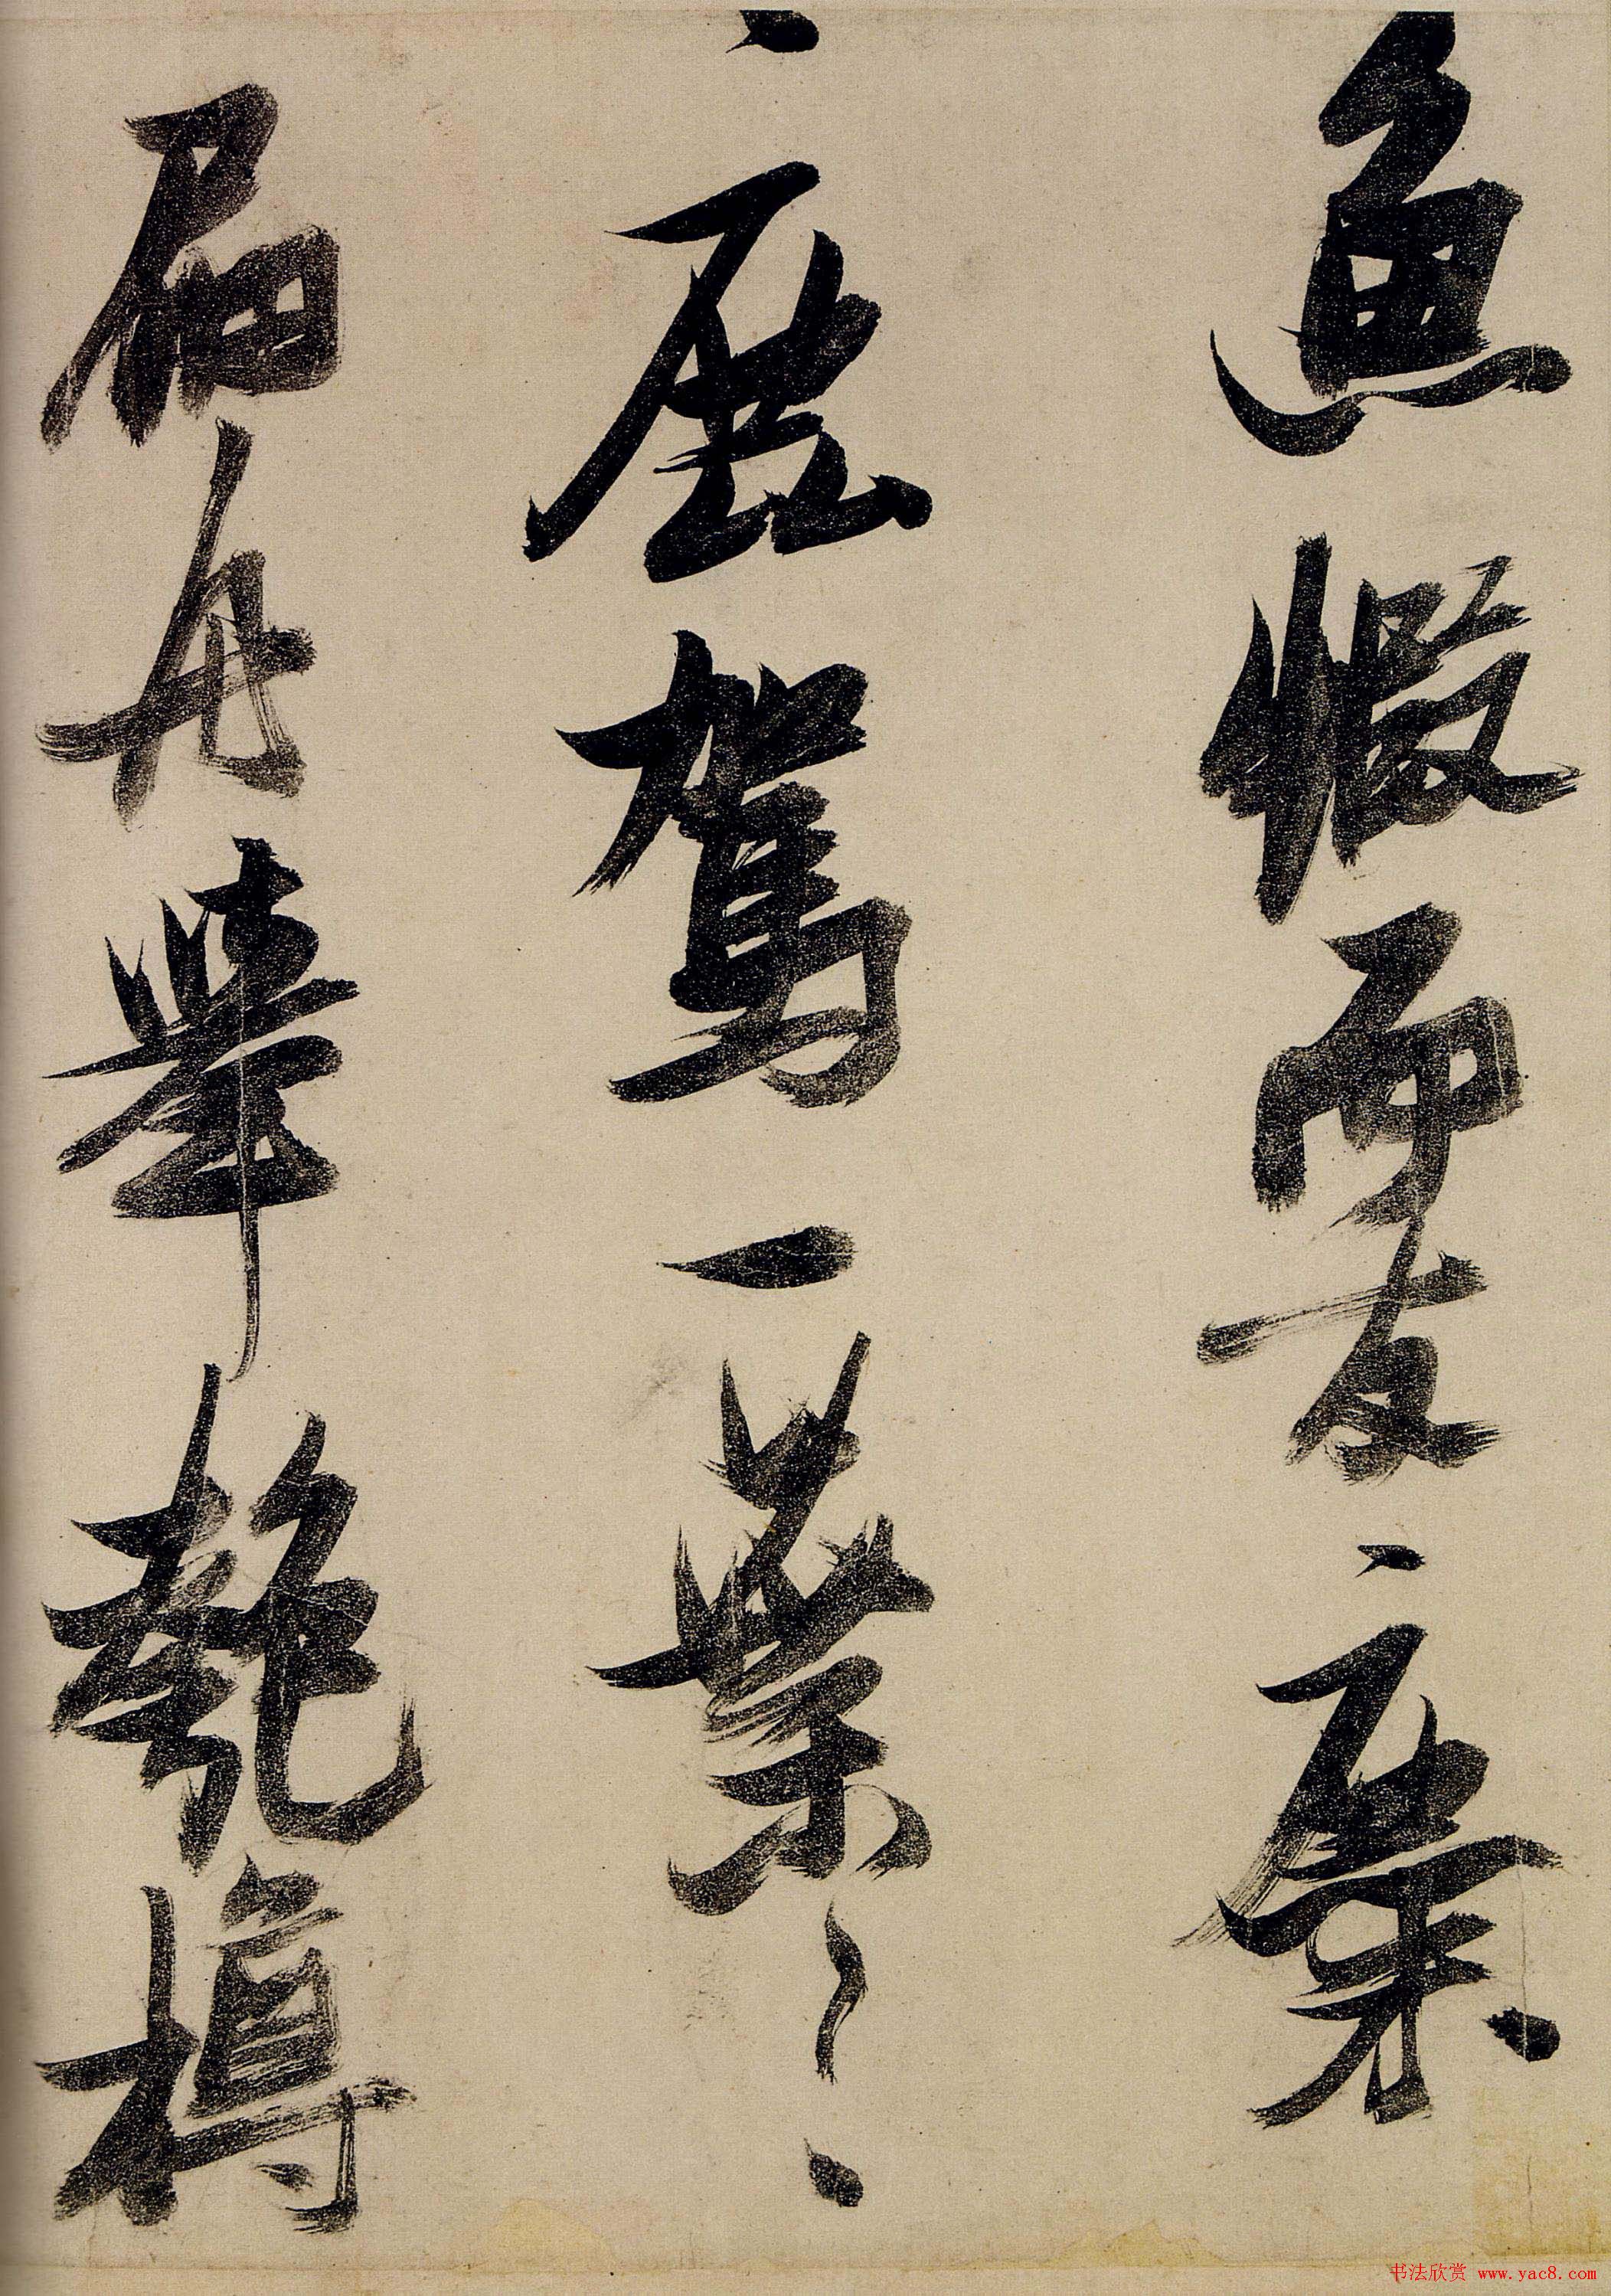 鱼蝦而友麋
鹿駕一葉之
扁舟舉匏樽
书法欣赏 www.yac8.com